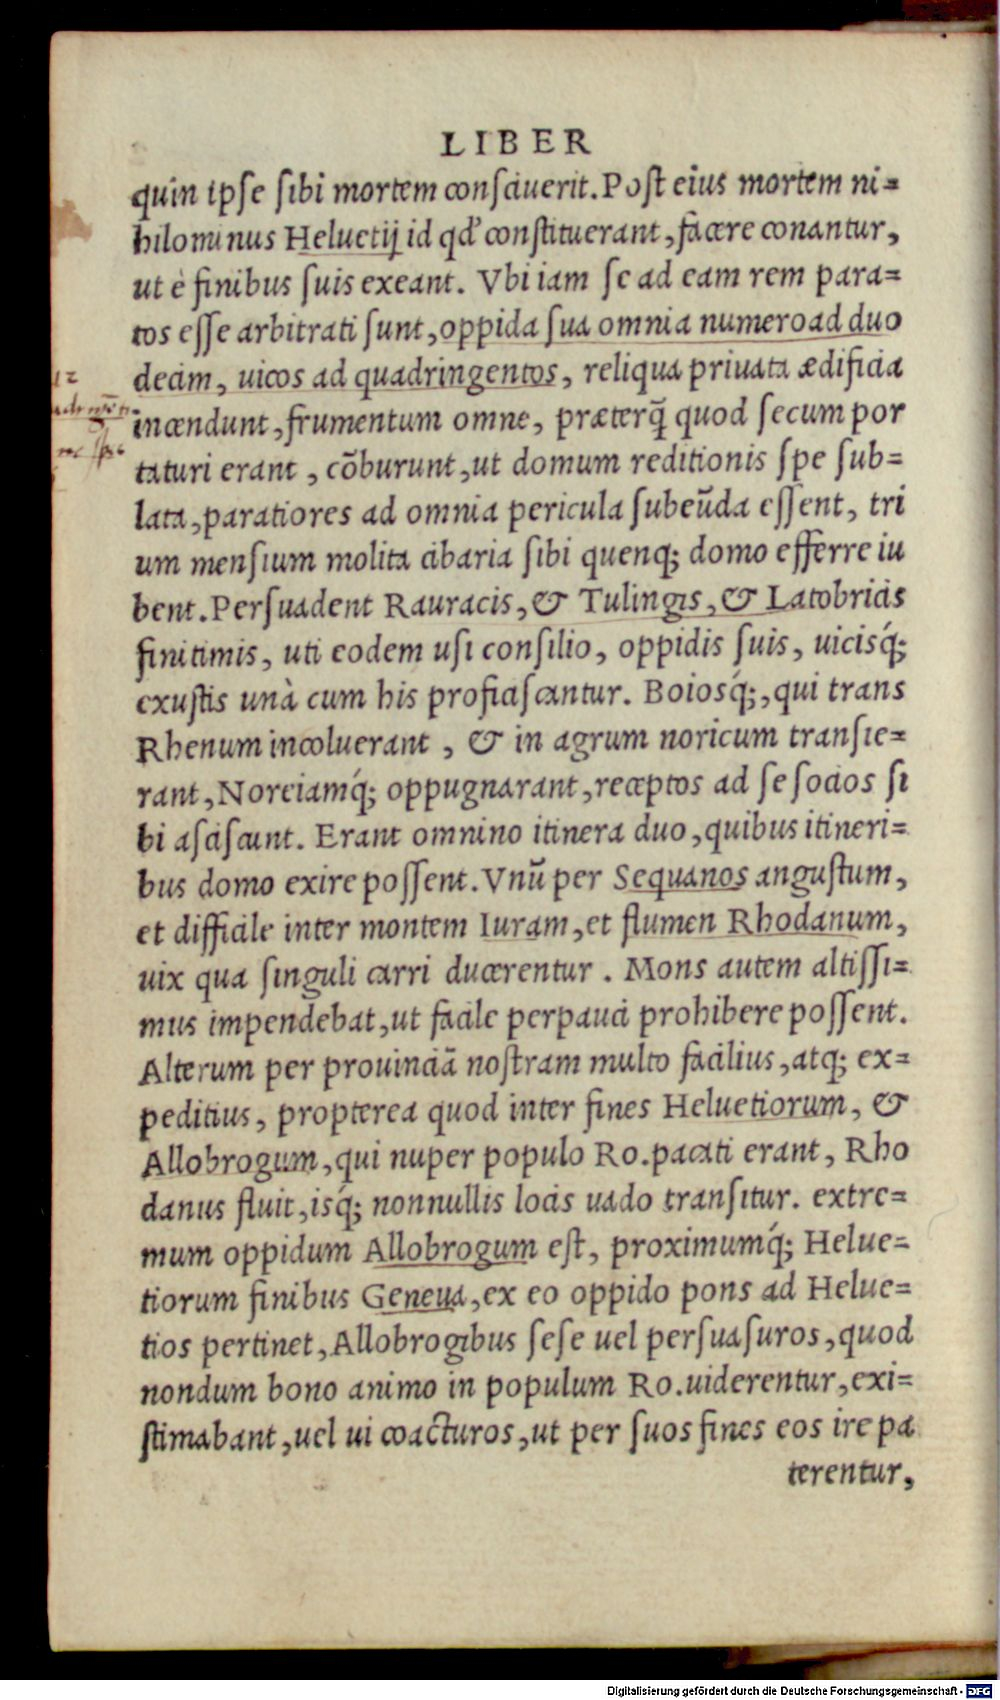 LIBER
quin ipse sibi mortem consciuerit. Post eius mortem ni=
hilominus Heluetij id qd' constituerant, facere conantur,
ut è finibus suis exeant. Vbi iam se ad eam rem para=
tos esse arbitrati sunt, oppida sua omnia numero ad duo
decim, uicos ad quadringentos, reliqua priuata ædificia
incendunt, frumentum omne, præterq̃ quod secum por
taturi erant, cōburunt, ut domum reditionis spe sub=
lata, paratiores ad omnia pericula subeūda essent, tri
um mensium molita cibaria sibi quenq; domo efferre iu
bent. Persuadent Rauracis, & Tulingis, & Latobricis
finitimis, uti eodem usi consilio, oppidis suis, uicisq́;
exustis unà cum his proficiscantur. Boiosq́;, qui trans
Rhenum incoluerant, & in agrum noricum transie=
rant, Noreiamq́; oppugnarant, receptos ad se socios si
bi asciscunt. Erant omnino itinera duo, quibus itineri=
bus domo exire possent. Vnū per Sequanos angustum,
et difficile inter montem Iuram, et flumen Rhodanum,
uix qua singuli carri ducerentur. Mons autem altissi=
mus impendebat, ut facile perpauci prohibere possent.
Alterum per prouinciā nostram multo facilius, atq; ex=
peditius, propterea quod inter fines Heluetiorum, &
Allobrogum, qui nuper populo Ro. pacati erant, Rho
danus fluit, isq́; nonnullis locis uado transitur. extre=
mum oppidum Allobrogum est, proximumq́; Helue=
tiorum finibus Geneua, ex eo oppido pons ad Helue=
tios pertinet, Allobrogibus sese uel persuasuros, quod
nondum bono animo in populum Ro. uiderentur, exi=
stimabant, uel ui coacturos, ut per suos fines eos ire pa
terentur,
12
Digitalisierung gefördert durch die Deutsche Forschungsgemeinschaft - DFG